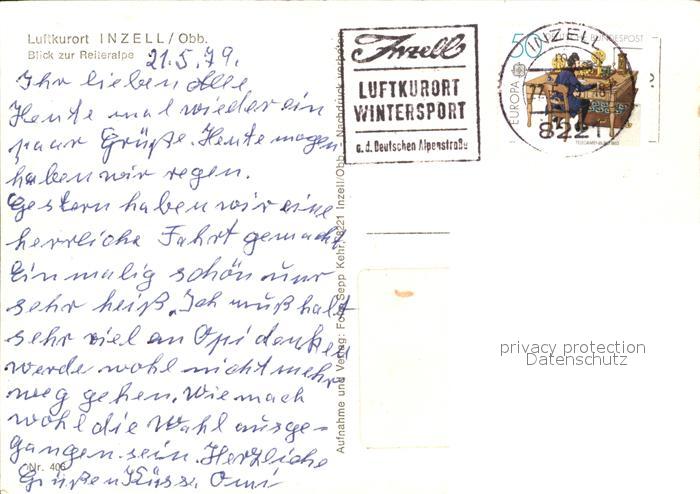 Luftkurort INZELL/Obb.
Blick zur Reiteralpe
21.5.79.
Ihr lieben Alle
Heute mal wieder ein
paar Grüße. Heute morgen
haben wir regen.
Gestern haben wir eine
herrliche Fahrt gemacht
Einmalig schön nur
sehr heiß. Ich muß halt
sehr viel an Opi denken
werde wohl nicht mehr
weg gehen. Wie mach
wohl die Wahl ausge-
gangen sein. Herzliche
Grüße Küsse Omi
Nr. 406
Aufnahme und Verlag: Foto Sepp Kehr, 8221 Inzell/Obb. - Nachdruck verboten
Inzell
LUFTKURORT
WINTERSPORT
a.d. Deutschen Alpenstraße
INZELL
8221
50
BUNDESPOST
EUROPA
privacy protection
Datenschutz